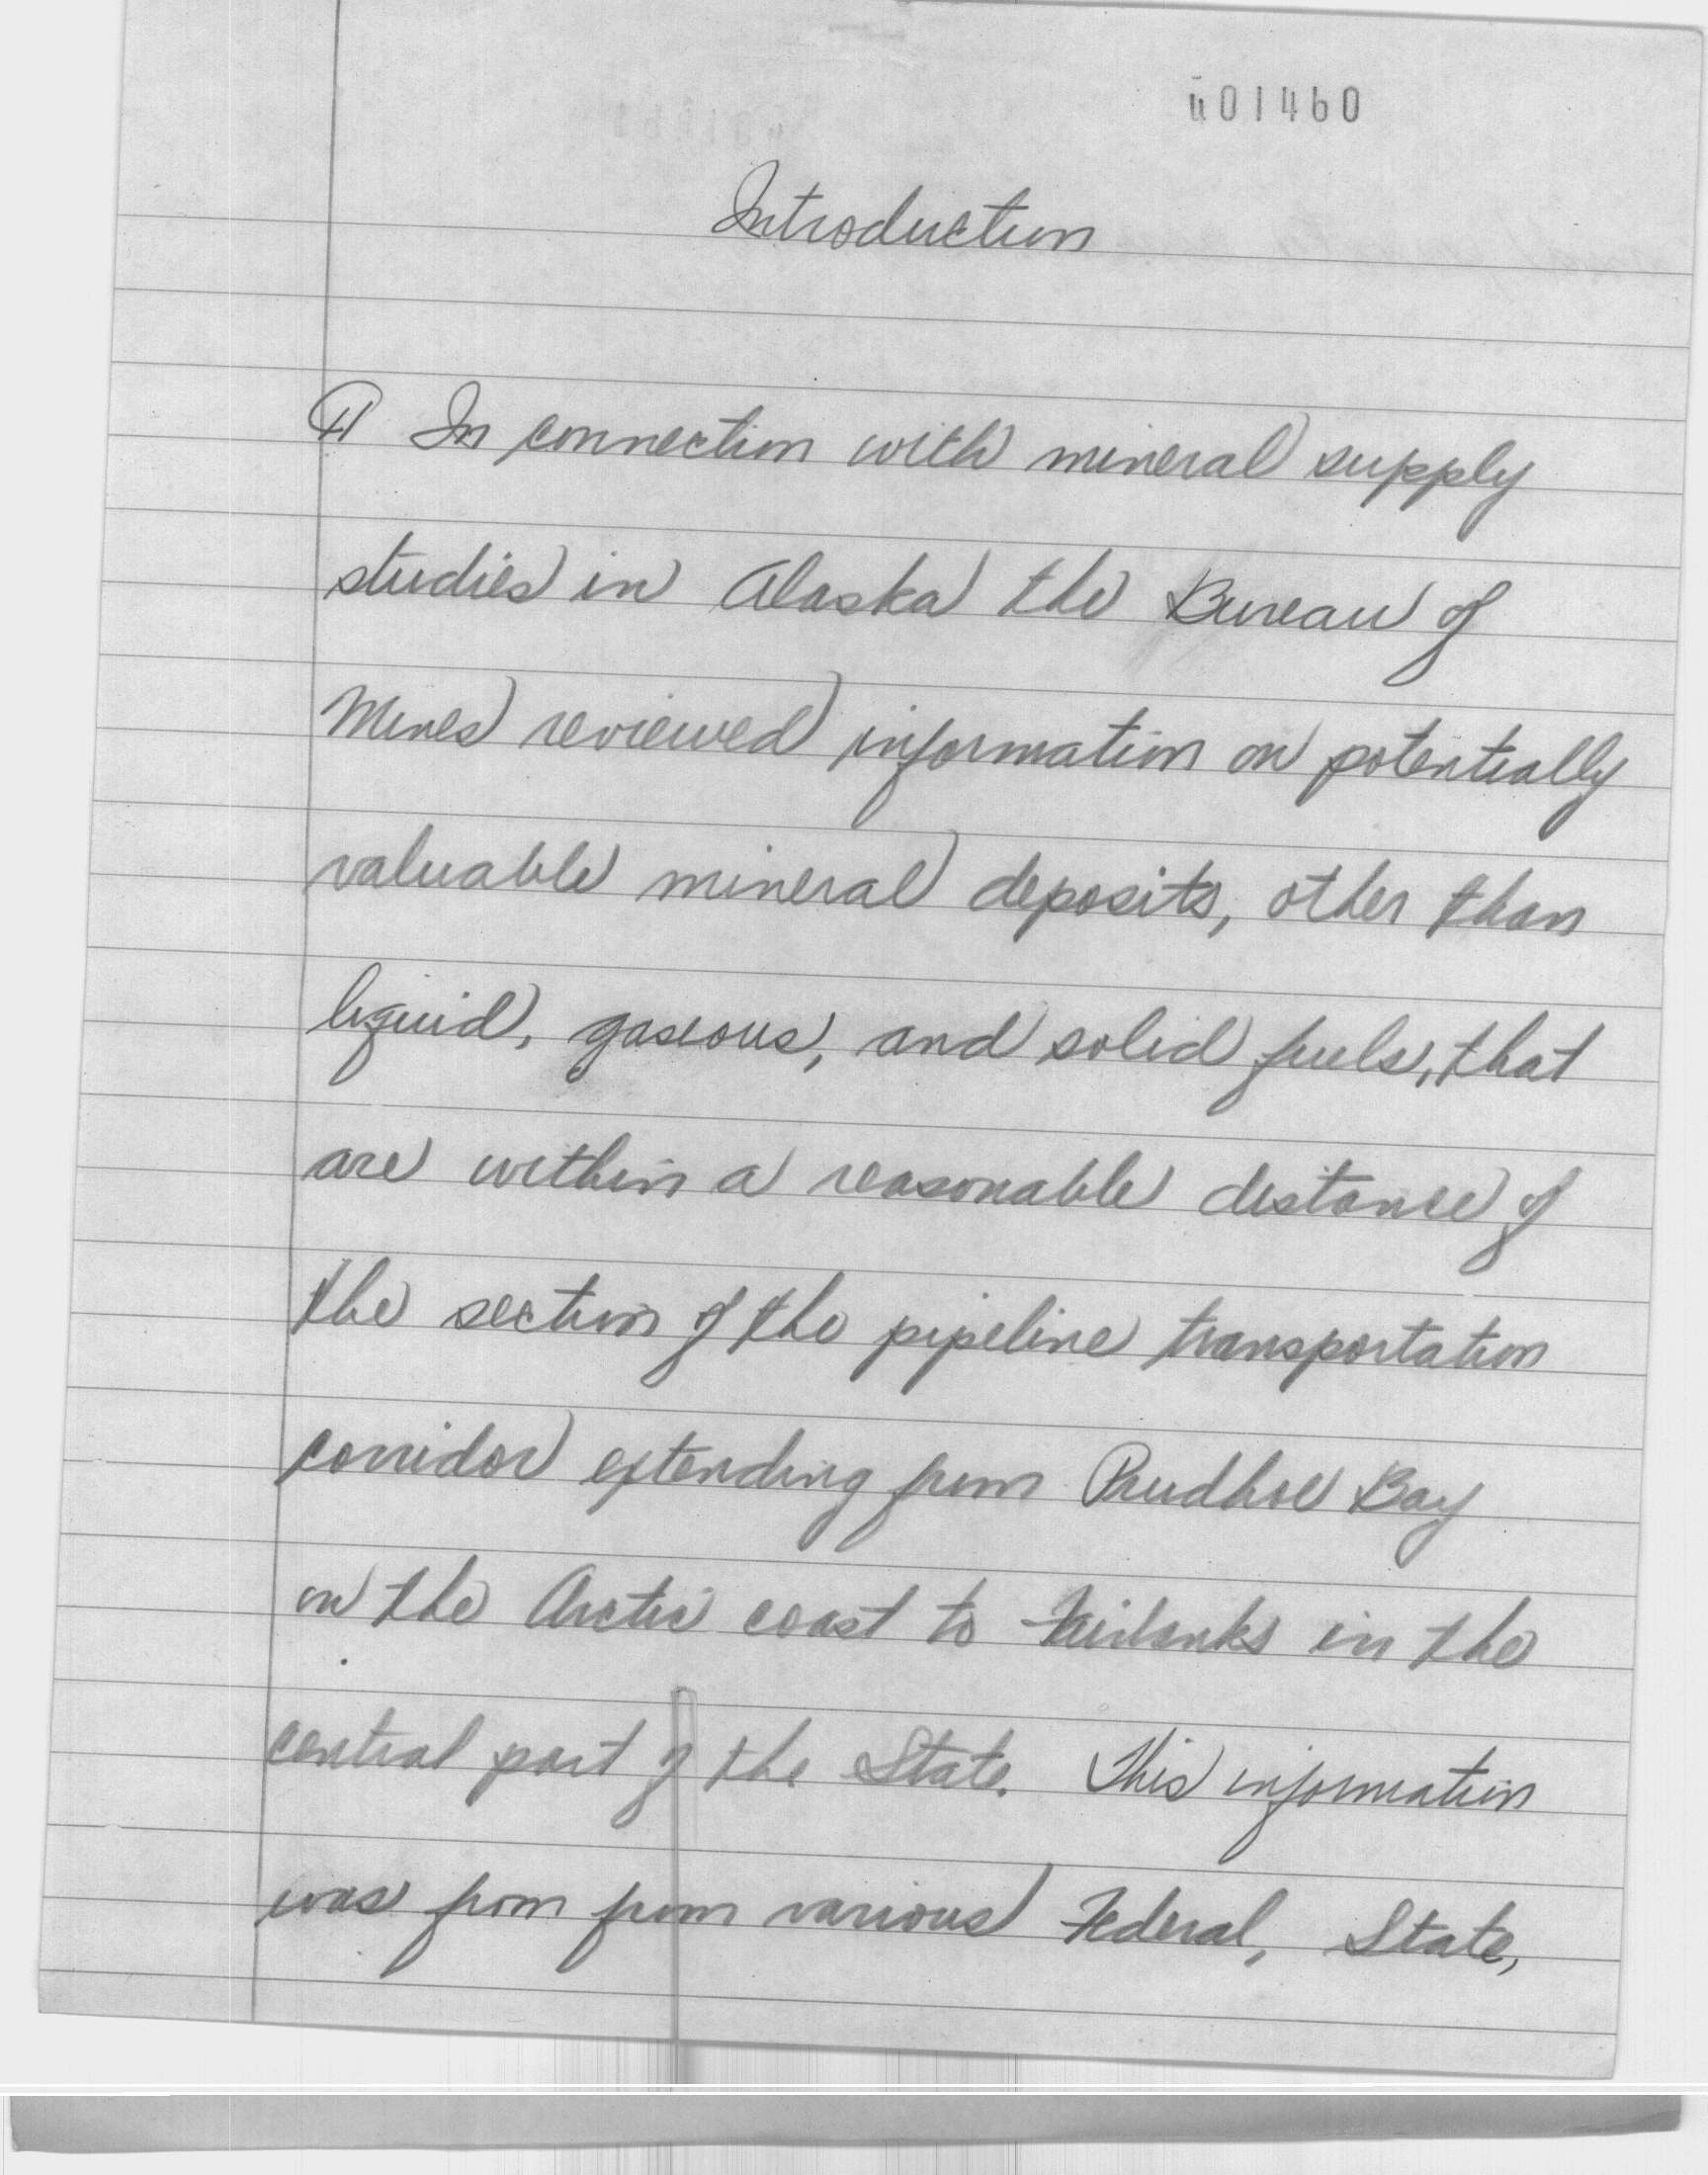 401460
Introduction
¶ In connection with mineral supply
studies in Alaska the Bureau of
Mines reviewed information on potentially
valuable mineral deposits, other than
liquid, gaseous, and solid fuels, that
are within a reasonable distance of
the section of the pipeline transportation
corridor extending from Prudhoe Bay
on the Arctic coast to Fairbanks in the
central part of the State. This information
was from from various Federal, State,